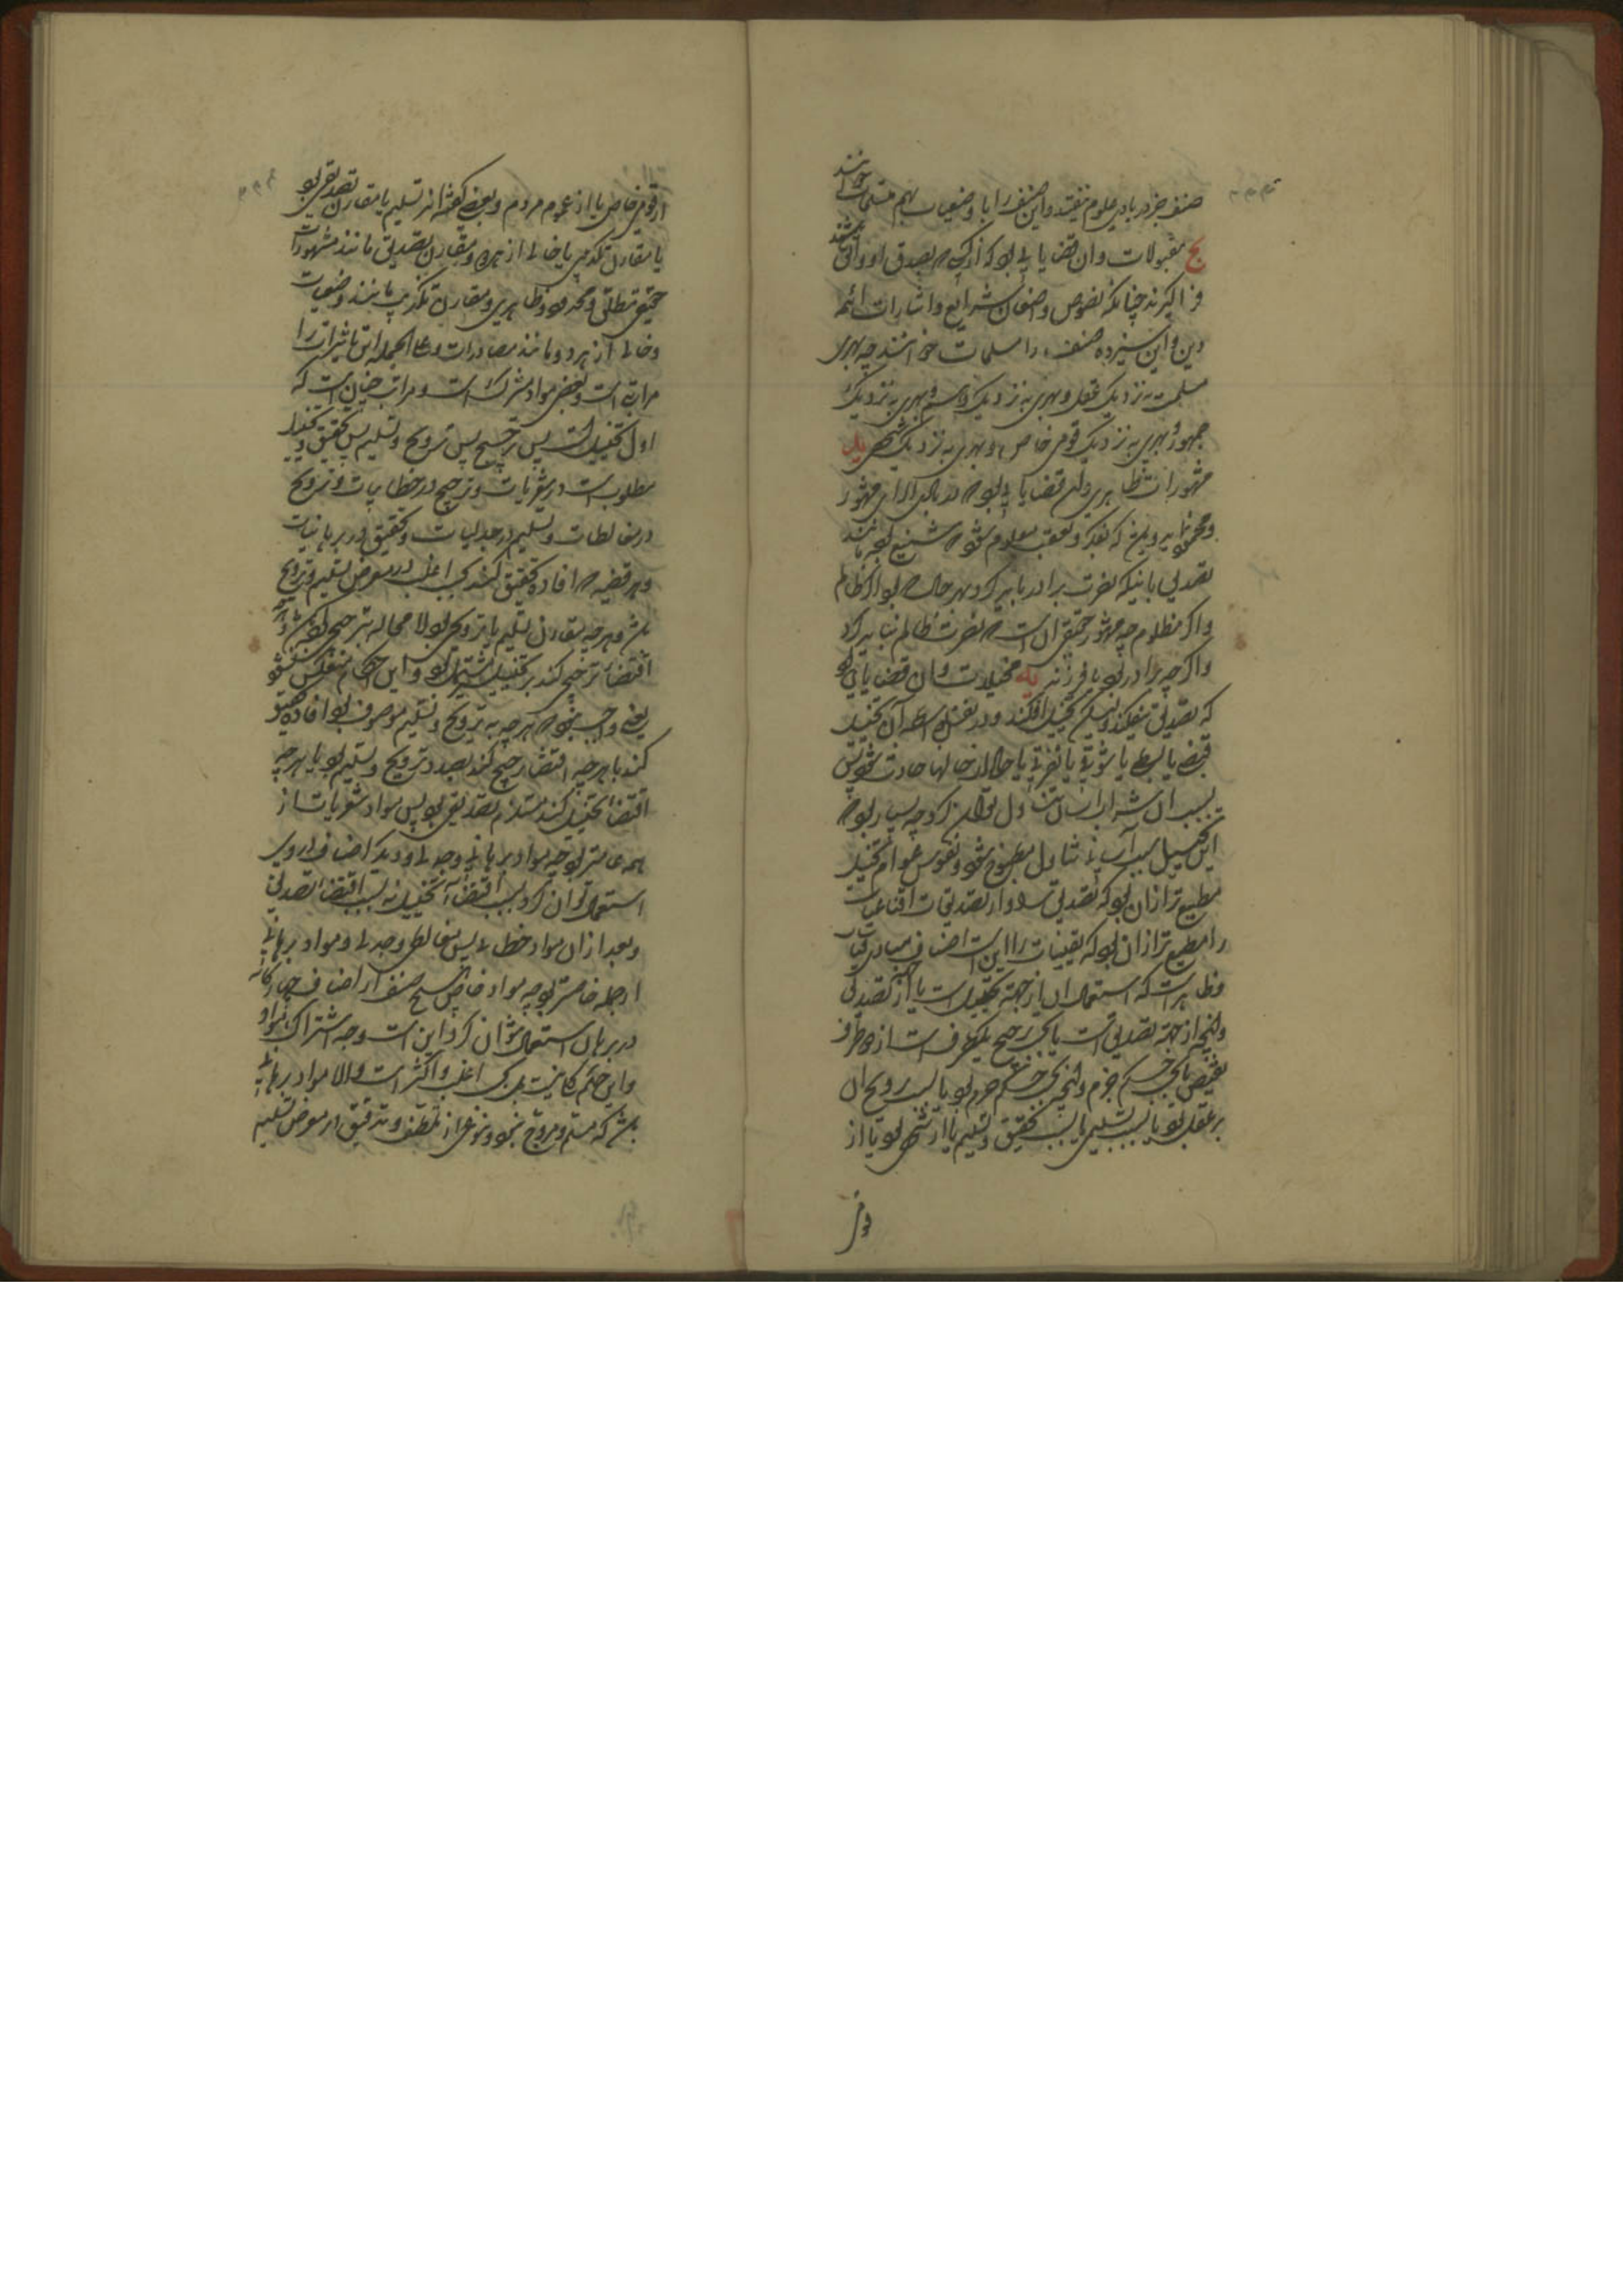 صنف جز در بادی علوم نیفتد و این صنف را با وضعیات بهم مسلمات خوانند
یج مقبولات و آن قضایایی بود که از کسی که بصدق او واثق باشند
فرا گیرند چنانکه نصوص واضعان شرایع و اشارات ائمه
دین و این سیزده صنف را مسلمات خوانند چه بهری
مسلمست به نزدیک عقل و بهری به نزدیک وهم و بهری به نزدیک
جمهور و بهری به نزدیک قومی خاص و بهری به نزدیک شخصی ید
مشهورات ظاهری و آن قضایایی بود که در بادی الرای مشهور
و محمود نماید و چون که تفکر و تعقب معلوم شود که شنیع بود مانند
تصدیق بانیکه نصرت برادر باید کرد بهر حال که بود اگر ظالم
و اگر مظلوم چه مشهور حقیقی آن است که نصرت ظالم نباید کرد
و اگر چه برادر بود یا فرزند یه مخیلات و آن قضایایی بود
که تصدیق نیفکند ولیکن تخییل افکند و در نفس بواسطه آن تخییل
قبضی یا بسطی یا شوقی یا نفرتی یا حالی از حالها حادث شود
بسبب آن
این تخییل سبب آن تناول مطبوع شود و نفوس عوام تخییل
مطیع تر از آن بود که تصدیق را و از تصدیقات اقناعیات
را مطیع تر از آن بود که یقینیات را این است اصناف مبادی قیاسات
و ظاهر است که استعمال آن یا از جهت تخییل است یا از جهت تصدیق
و آنچه از جهت تصدیق است یا بحسب ترجیح یکطرف است از دو طرف
نقیض یا بحسب حکم جزم و آنچه بحسب حکم جزم بود یا بسبب ترویج آن
بر عقل بود یا بسبب تسلیم یا بسبب تحقیق و تسلیم یا از شخصی بود یا از
قومی
از قومی خاص یا از عموم مردم و بعضی گفته‌اند تسلیم یا مقارن تصدیقی بود
یا مقارن تکذیبی یا خالی از هر دو و مقارن تصدیق مانند مشهورات
حقیقی مطلق و محدود و ظاهری و مقارن تکذیب مانند وضعیات
و خالی از هر دو مانند مصادرات و علی الجمله این تاثیرات را
مراتب است و بعضی مواد مشترک است و مراتب چنان است که
اول تخییل است پس ترجیح پس ترویج و تسلیم پس تحقیق و تخییل
مطلوب است در شعریات و ترجیح در خطابیات و ترویج
در مغالطات و تسلیم در جدلیات و تحقیق در برهانیات
و هر قضیه که افاده تحقیق کند بحسب اغلب در معرض تسلیم و ترویج
باشد و هر چه مقارن تسلیم یا ترویج بود لا محاله بر ترجیح
اقتضاء ترجیح کند بر تخییل مشتمل بود و این حکم منعکس نشود
یعنی واجب نبود که هر چه به ترویج و تسلیم موصوف بود افاده تحقیق
کند یا هر چه اقتضاء ترجیح کند بصدد ترویج و تسلیم بود یا هر چه
اقتضاء تخییل کند مستلزم تصدیقی بود پس مواد شعریات از
همه عامتر بود چه مواد برهانی و جدلی و دیگر اصناف را در وی
استعمال توان کرد بسبب اقتضاء تخییل نه بسبب اقتضاء تصدیق
و بعد از آن مواد خطابی پس مغالطی و جدلی و مواد برهانی
از جمله خاصتر بود چه مواد خاص هیچ صنف از اصناف چهارگانه
در برهان استعمال نتوان کرد این است وجه اشتراک مواد
و این حکم که گفته شد بحسب اغلب و اکثر است والا مواد برهانی
باشد که مسلم و مروج نبود و نوعی از تلطف و تدقیق در معرض تسلیم